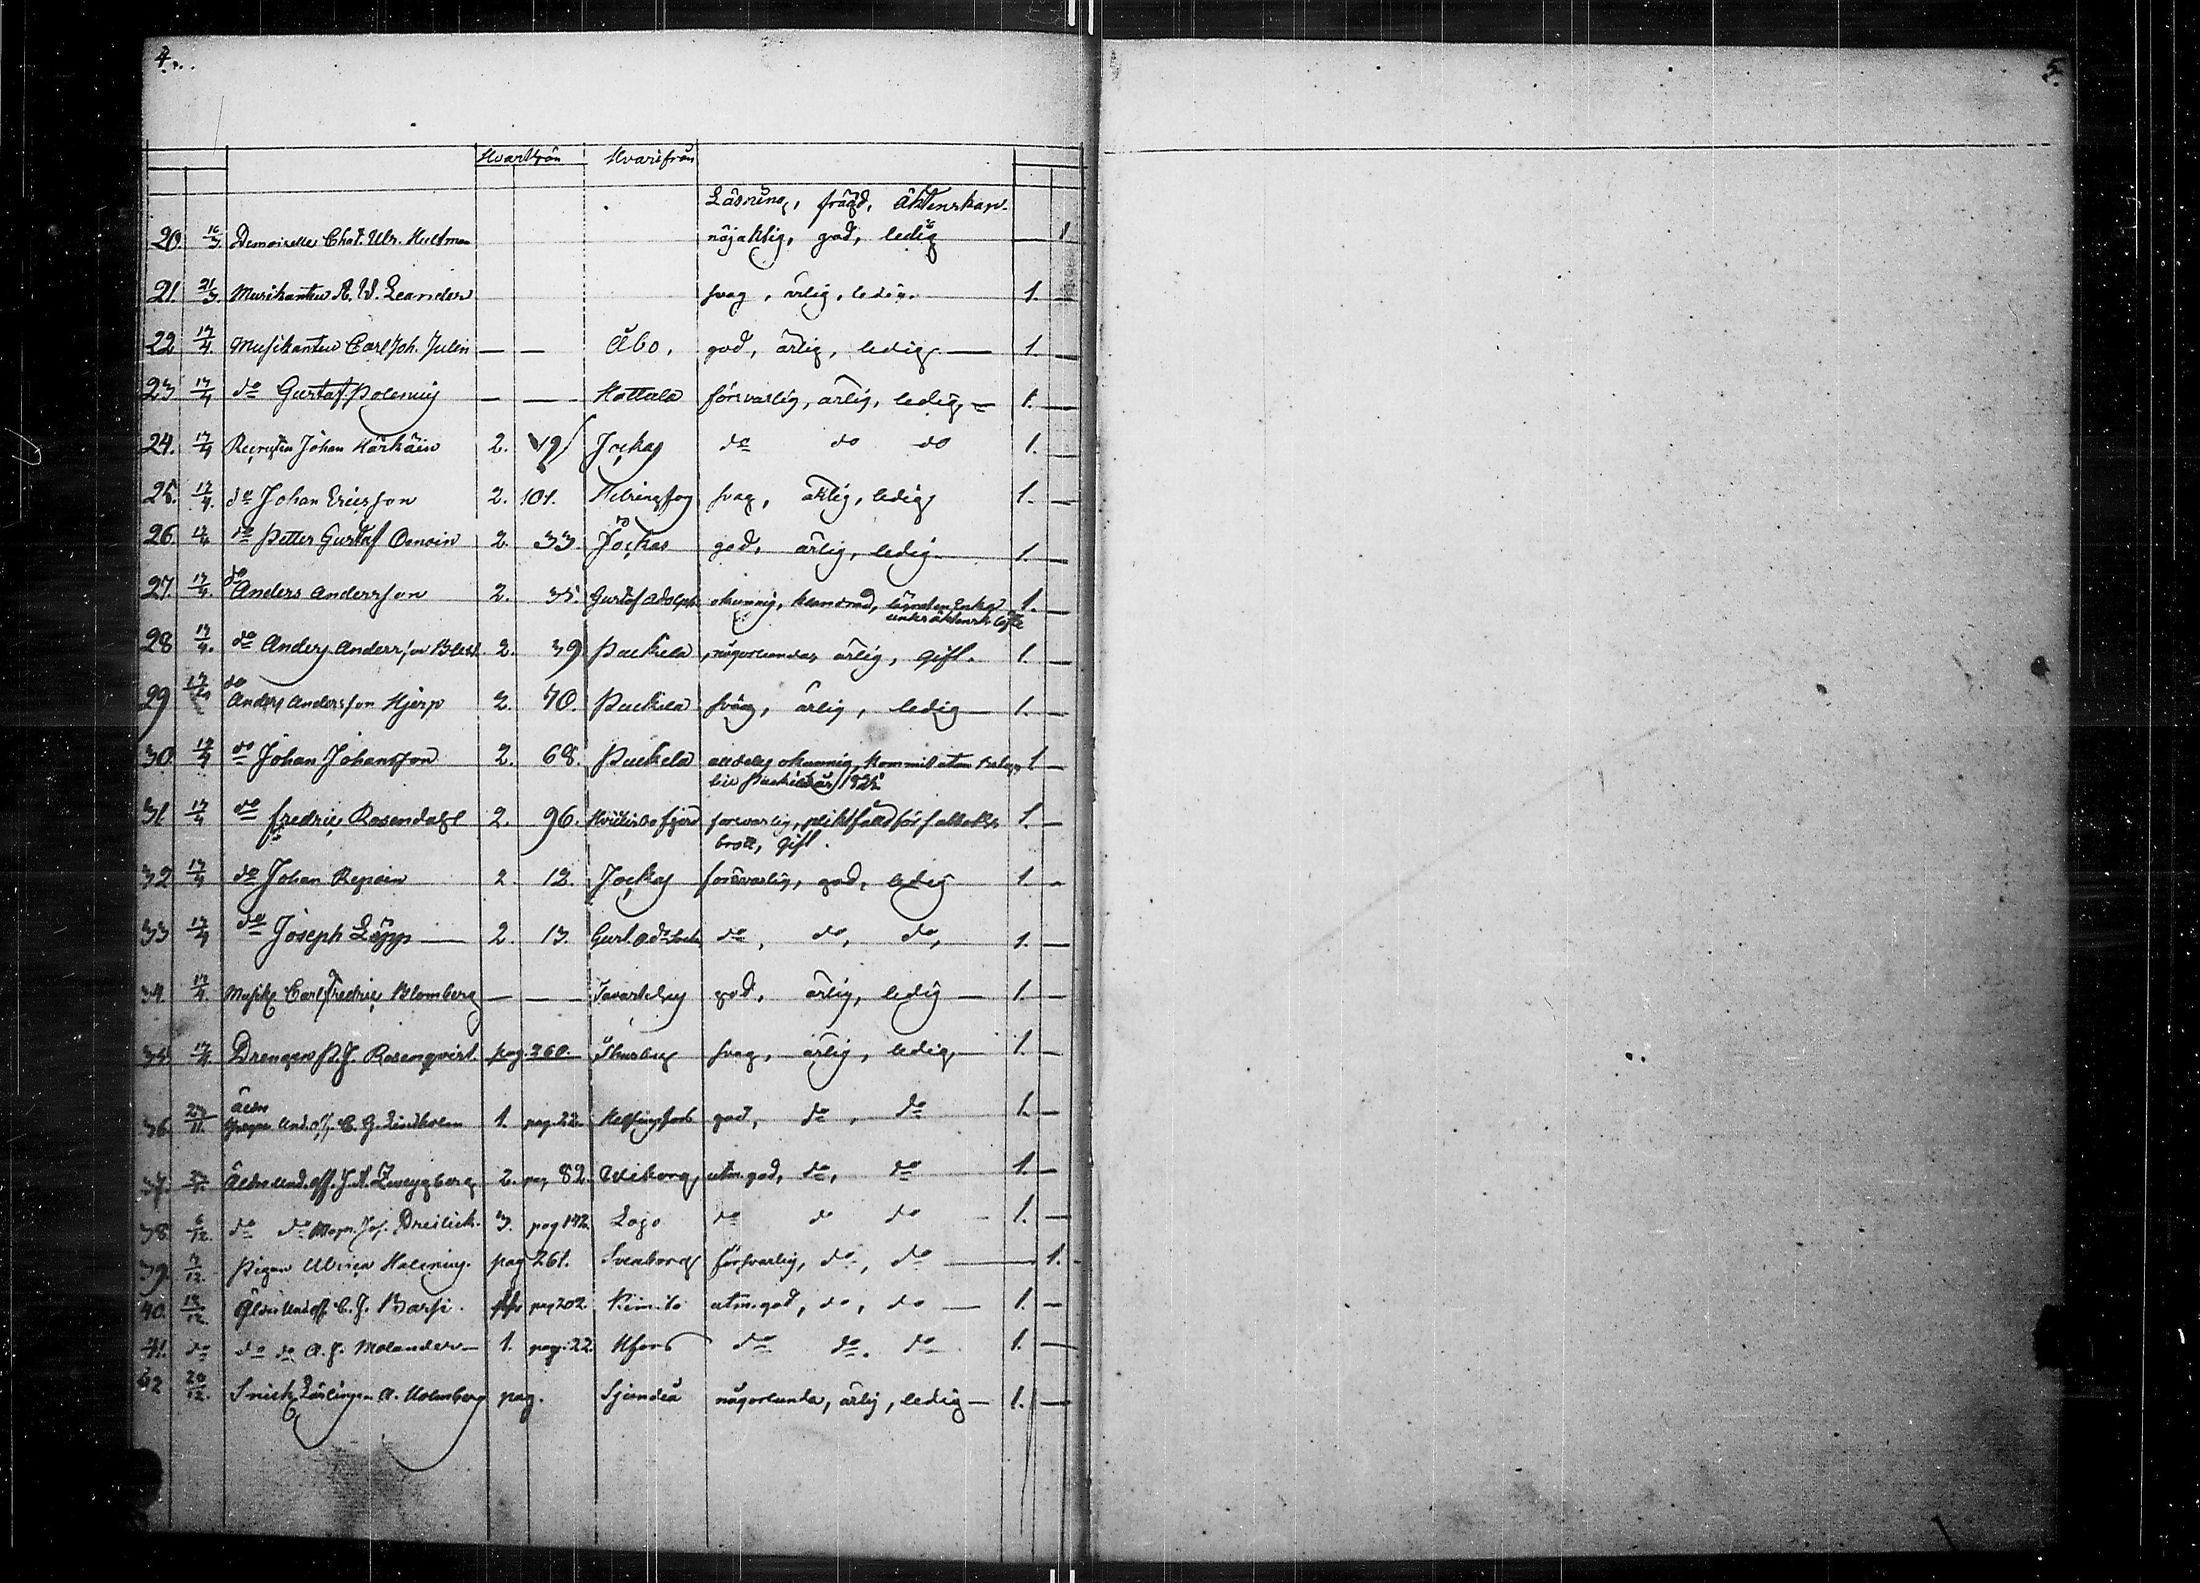 4.
5.
Hvarifrån
Läsning, frägd, Äktenskap.
20. 16/3 Demoiselle Chat. Ulr. Hultman nöjaktig, god, ledig 1
21. 21/3 Musikanten A. W. Leander svag, ärlig, ledig. 1. —
22 17/4. Musikanten Carl Joh. Julin — — Åbo. god, ärlig, ledig — 1. —
23 17/4 do Gustaf Polenius — — Hattula försvarlig, ärlig, ledig — 1. —
24. 17/4 Recruten Johan Härkäin 2. Jockas do do do 1. —
25. 17/4. do Johan Ericsson 2. 101. Helsingfors svag, ärlig, ledig 1. —
26. 17/4 do Petter Gustaf 2. 33. Jockas god, ärlig, ledig 1. —
27. 17/4. do Anders Andersson 2. 35. Gustaf Adolph okunnig, 1. —
28 17/4. do Anders Andersson 2. 39 Puckila någorlunda, ärlig, gift. 1. —
29 17/4 do Anders Andersson Hjerp 2. 70. Puckila svag, ärlig, ledig — 1. —
30 17/4 do Johan Johansson 2. 68. Puckila alldeles okunnig, kommit utan 1 —
31 17/4 do Fredric Rosendahl 2. 96. försvarlig, 1. —
brott, gift.
32 17/4 do Johan Repoin 2. 12. Jockas försvarlig, god, ledig 1. —
33 17/4 do Joseph Löpp — 2. 13. do, do, do, 1. —
34 17/4. Musik Carl Fredric Blomberg — — Tavastehus god, ärlig, ledig — 1. —
35 17/4. Drengen P. J. Rosenqvist pag. 260. svag, ärlig, ledig, — 1. —
36. 27/11. Äldre And. off. C. G. Lindholm 1. pag. 22. Helsingfors god, do, do 1. —
37. Äldre Und. off. J. A. Zweygberg 2. pag 82. Wiborg utm. god, do, do 1. —
38. 6/12. do do Jos. Dreilick. 3. pag 172. Lojo do do do — 1. —
39. 7/12. Pigan Ulrica Halenius. pag 261. Sveaborg försvarlig, do, do — 1.
40. 12/12. Äldre Und off C. J. Barsi. pag 202. Kimito utm. god, do, do — 1. —
41. do do do A. F. Molander — 1. pag. 22 Hfors do do. do 1. —
42 20/12. Snick. Lärlingen A. Holmberg pag. Sjundeå någorlunda, ärlig, ledig — 1. —